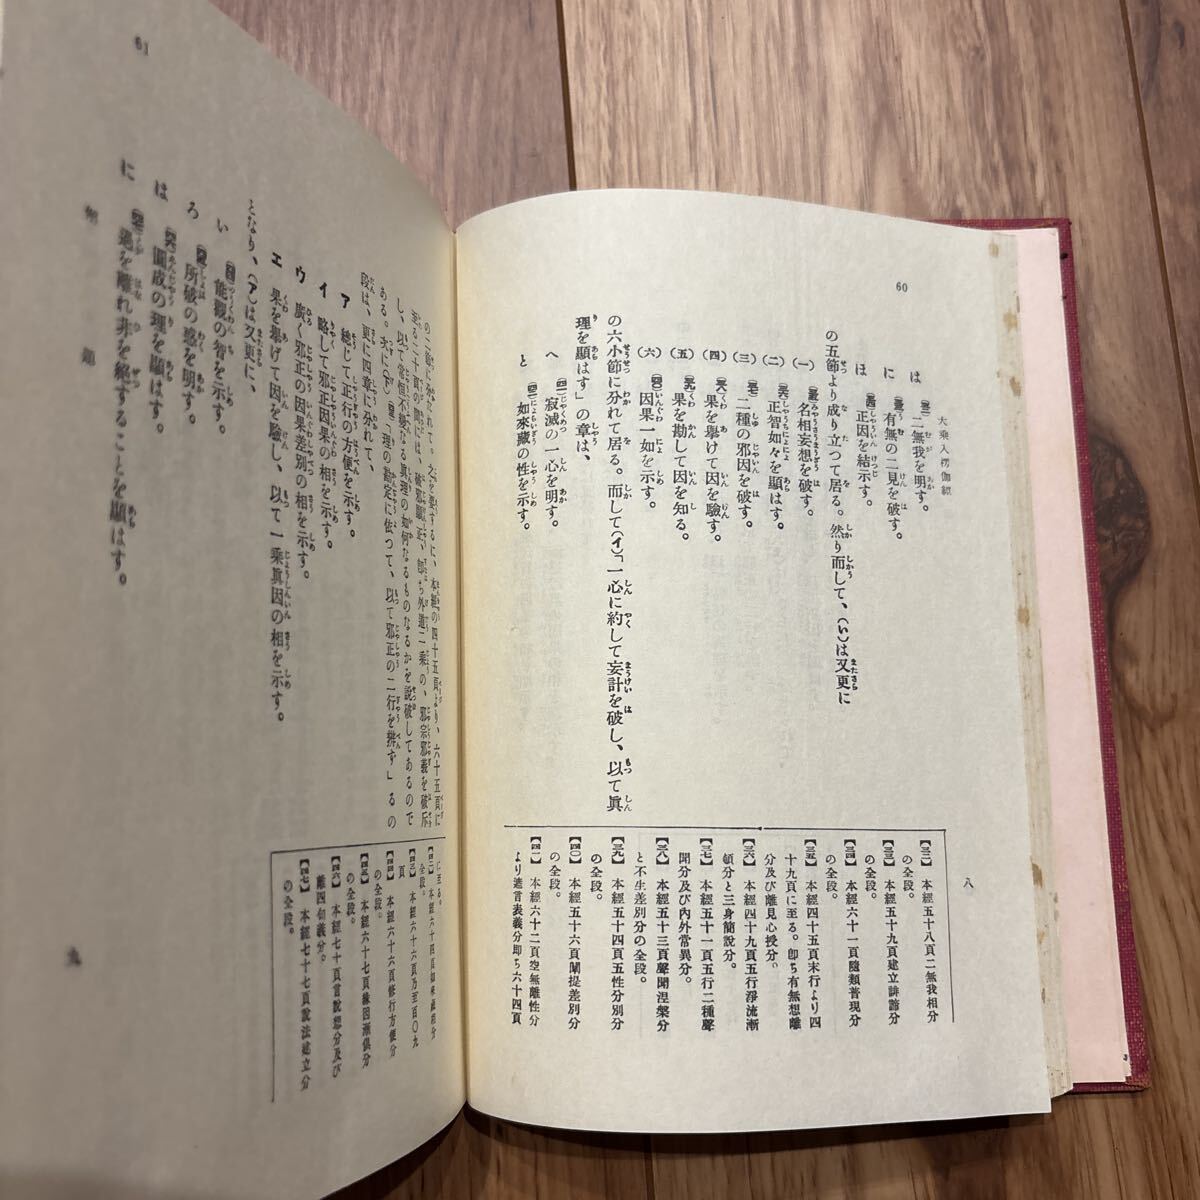 60
大乘入楞伽經
は【三二】二無我を明す。
に【三三】有無の二見を破す。
ほ【三四】正因を結示す。
の五節より成り立つて居る。然り而して、(い)は又更に
(一)【三五】名相妄想を破す。
(二)【三六】正智如々を顯はす。
(三)【三七】二種の邪因を破す。
(四)【三八】果を擧げて因を驗す。
(五)【三九】果を勘して因を知る。
(六)【四〇】因果一如を示す。
の六小節に分れて居る。而して(イ)「一心に約して妄計を破し、以て眞
理を顯はす」の章は、
へ【四一】寂滅の一心を明す。
と【四二】如來藏の性を示す。
八
【三二】本經五十八頁二無我相分
の全段。
【三三】本經五十九頁建立誹謗分
の全段。
【三四】本經六十一頁隨類普現分
の全段。
【三五】本經四十五頁末行より四
十九頁に至る。卽ち有無想離
分及び離見心授分。
【三六】本經四十九頁五行淨流漸
頓分と三身簡說分。
【三七】本經五十一頁五行二種聲
聞分及び內外常異分。
【三八】本經五十三頁聲聞涅槃分
と不生差別分の全段。
【三九】本經五十四頁五性分別分
の全段。
【四〇】本經五十六頁闡提差別分
の全段。
【四一】本經六十二頁空無離性分
より遣言表義分卽ち六十四頁
61
の二節に分たれて。之を要するに、本經の四十五頁より、六十五頁に
至る二十頁の間には、破邪顯正、卽ち外道二乘の、邪宗邪義を破斥
し、以て常恒不變なる眞理の如何なるものなるかを說破してあるので
ある。次に(下)「理の勘定に依つて、以て邪正の二行を辨ず」るの
段は、更に四章に分れて、
ア 總じて正行の方便を示す。
イ 略して邪正因果の相を示す。
ウ 廣く邪正の因果差別の相を示す。
エ 果を擧げて因を驗し、以て一乘眞因の相を示す。
となり、(ア)は又更に、
い 能觀の智を示す。
ろ 所破の惑を明す。
は 圓成の理を顯はす。
に 過を離れ非を絕することを顯はす。
解題
九
に至る。
【四三】本經六十六頁乃至百〇九
頁
【四四】本經六十六頁修行方便分
の全段。
【四五】本經六十七頁緣因漸俱分
の全段。
【四六】本經七十頁言說想分及び
離四句義分。
【四七】本經七十七頁說法建立分
の全段。